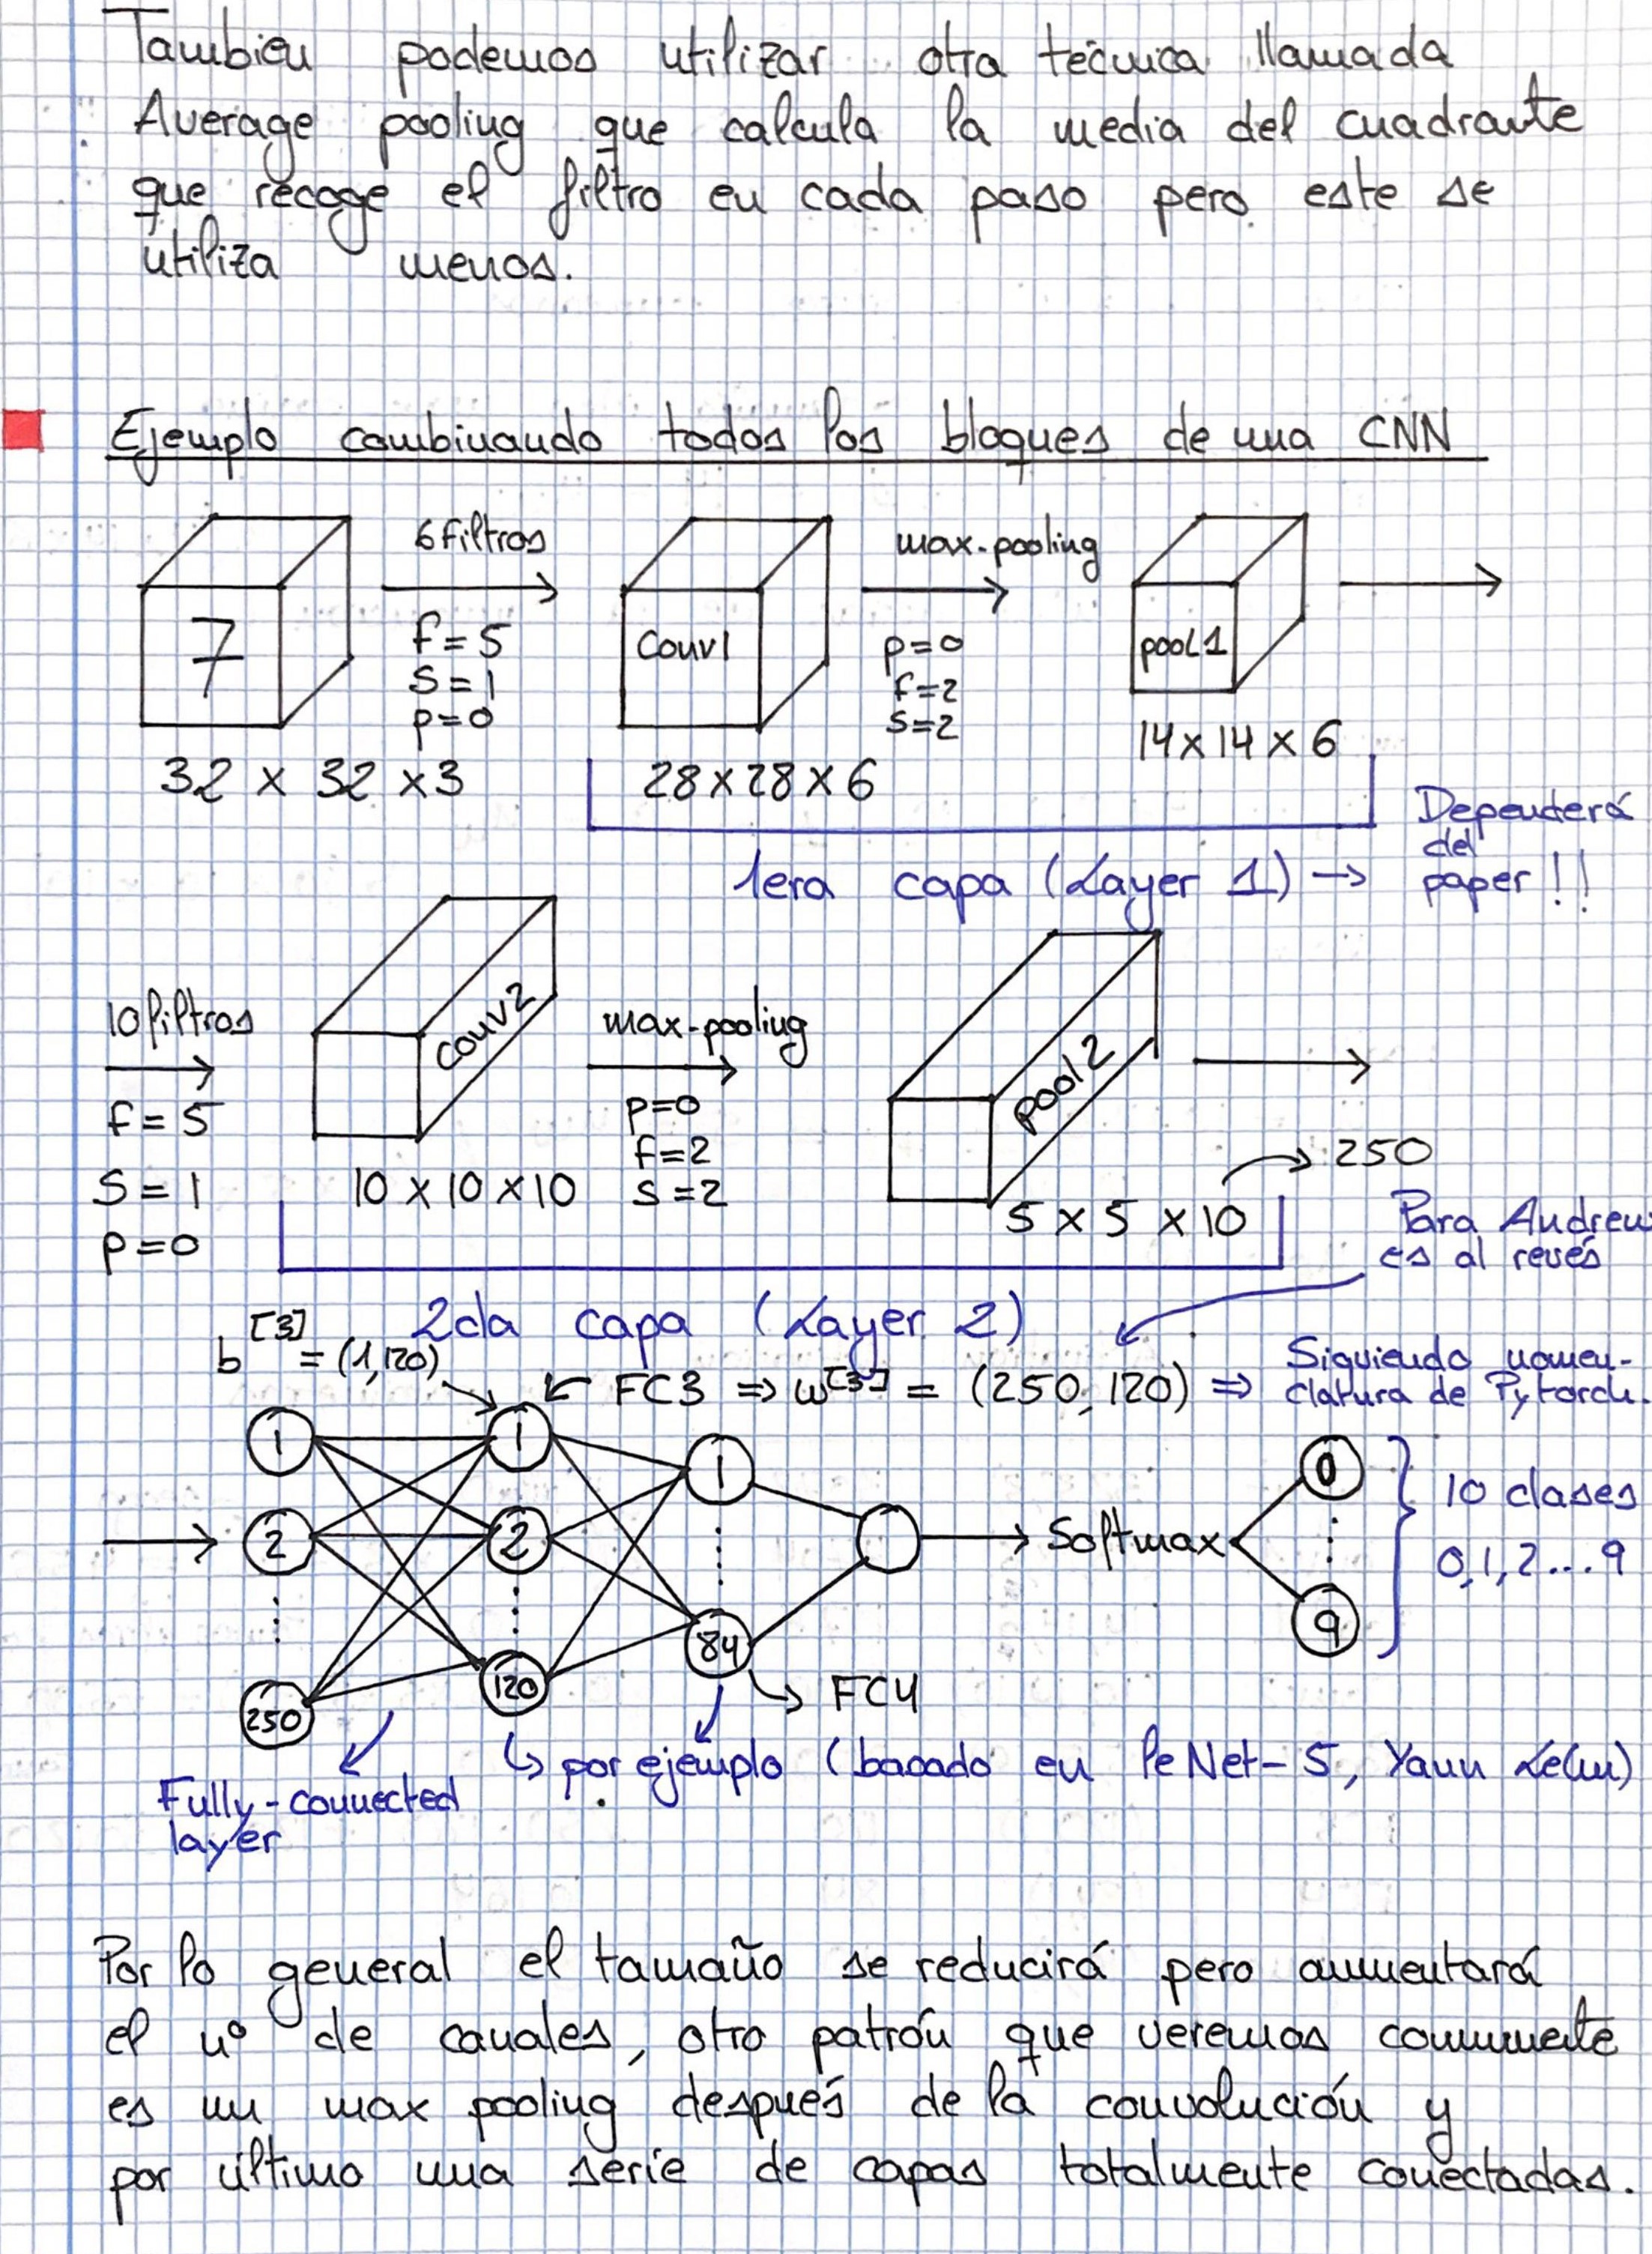 Tambien podemos utilizar otra técnica llamada
Average pooling que calcula la media del cuadrante
que recoge el filtro en cada paso pero este se
utiliza menos.
Ejemplo combinando todos los bloques de una CNN
6 filtros
max-pooling
7
f=5
s=1
p=0
Conv1
p=0
f=2
s=2
pool1
32 x 32 x 3
28 x 28 x 6
14 x 14 x 6
1era capa (Layer 1) →
Dependerá
del
paper!!
10 filtros
f=5
s=1
p=0
conv2
10 x 10 x 10
max-pooling
p=0
f=2
s=2
pool2
5 x 5 x 10
250
2da capa (Layer 2)
Para Andrew
es al revés
b[3] = (1,120)
FC3 ⇒ w[3] = (250,120) ⇒
Siguiendo nomen-
clatura de Pytorch.
1 1 1
2 2
250 120 84
Softmax
0
9
10 clases
0,1,2...9
FC4
Fully-connected
layer
por ejemplo (basado en LeNet-5, Yann LeCun)
Por lo general el tamaño se reducirá pero aumentará
el nº de canales, otro patrón que veremos comunmente
es un max pooling después de la convolución y
por último una serie de capas totalmente conectadas.